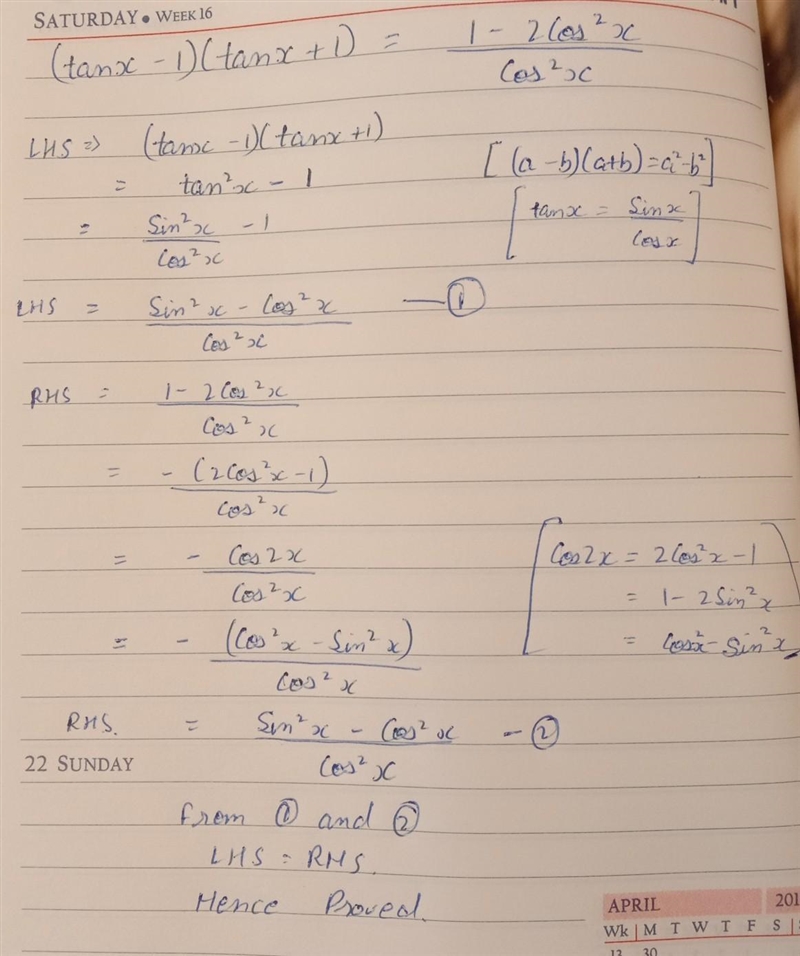 SATURDAY • WEEK 16
(tanx - 1)(tanx + 1) = (1 - 2Cos²x)/(Cos²x)
LHS ⇒ (tanx - 1)(tanx + 1) [(a - b)(a+b) = a² - b²]
= tan²x - 1
= (Sin²x)/(Cos²x) - 1 [tanx = (Sinx)/(Cosx)]
LHS = (Sin²x - Cos²x)/(Cos²x) — ①
RHS = (1 - 2Cos²x)/(Cos²x)
= - (2Cos²x - 1)/(Cos²x)
= - (Cos2x)/(Cos²x) [Cos2x = 2Cos²x - 1
= 1 - 2Sin²x
= - (Cos²x - Sin²x)/(Cos²x) = Cos²x - Sin²x]
RHS. = (Sin²x - Cos²x)/(Cos²x) - ②
22 SUNDAY
From ① and ②
LHS = RHS.
Hence Proved.
APRIL 201
Wk M T W T F S
13 30